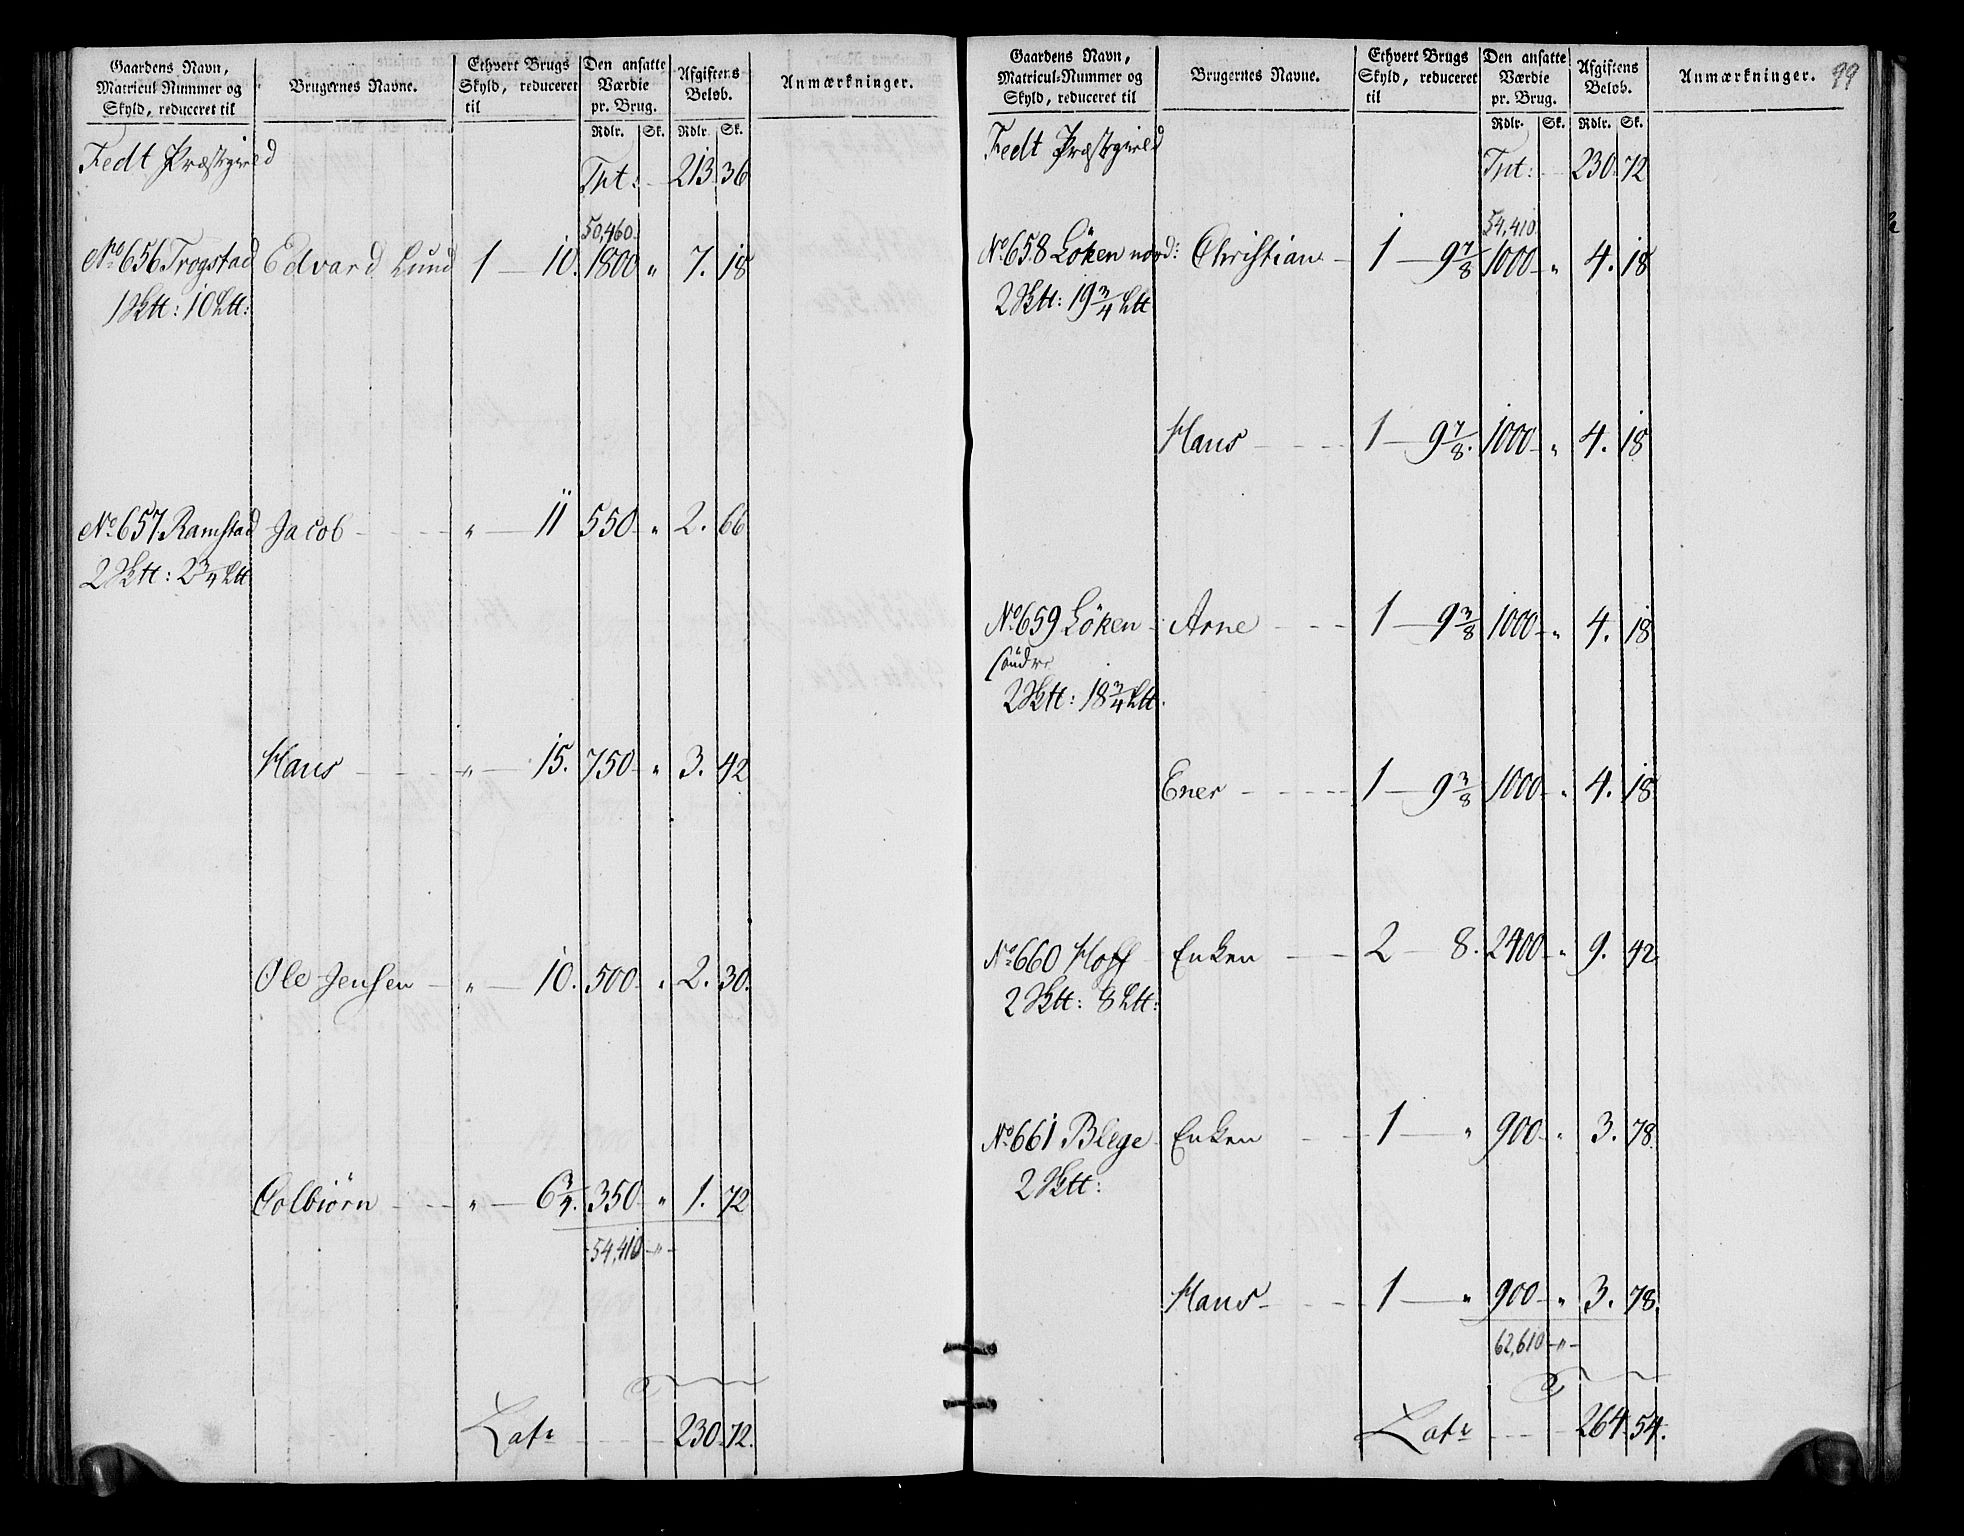 Gaardens Navn, Matricul Nummer og Skyld, reduceret til | Brugernes Navne. | Ethvert Brugs Skyld, reduceret til | Den ansatte Værdie pr. Brug. Rdlr. Sk. | Afgiftens Beløb. Rdlr. Sk. | Anmærkninger.
Fedt Præstegield Trt: 213. 36
50,460.
No 656 Trogstad Edvard Lund 1 — 10. 1800 " 7. 18
1 Sktt: 10 Ltt:
No 657. Ramstad Jacob " — 11 550 " 2. 66
2 Sktt: 2 3/4 Ltt
Hans " — 15. 750 " 3. 42
Ole Jensen " — 10. 500 " 2. 30.
Colbiörn " — 6 3/4. 350 " 1. 72
54,410 "
Latr 230. 72.
Gaardens Navn, Matricul-Nummer og Skyld, reduceret til | Brugernes Navne. | Ethvert Brugs Skyld, reduceret til | Den ansatte Værdie pr. Brug. Rdlr. Sk. | Afgiftens Beløb. Rdlr. Sk. | Anmærkninger. 99
Fedt Præstegield Trt: 230. 72
54,410
No 658 Löken nord: Christian 1 — 9 7/8 1000 " 4. 18
2 Sktt: 19 3/4 Ltt
Hans 1 — 9 7/8. 1000 " 4. 18
No 659 Löken Arne 1 — 9 3/8 1000 " 4. 18
söndre
2 Sktt: 18 3/4 Ltt.
Ener 1 — 9 3/8 1000 " 4. 18
No 660 Hoff Enken 2 — 8. 2400 " 9. 42
2 Sktt: 8 Ltt:
No 661 Blege Enken 1 — " 900 " 3. 78
2 Sktt:
Hans 1 — " 900 " 3. 78.
62,610 "
Latr 264. 54.